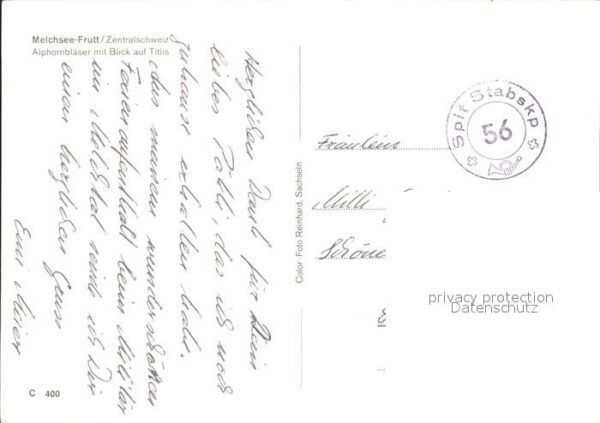 Melchsee-Frutt / Zentralschweiz
Alphornbläser mit Blick auf Titlis
Herzlichen Dank für Dein
liebes Päckli, das ich noch
zuhause erhalten habe.
von meinem wunderschönen
Ferienaufenthalt beim Militär
im Melchtal sende ich Dir
einen herzlichen Gruss
C 400
Color-Foto Reinhard, Sachseln
Spit Stabskp
56
Fräulein
Milli
Schöne
privacy protection
Datenschutz